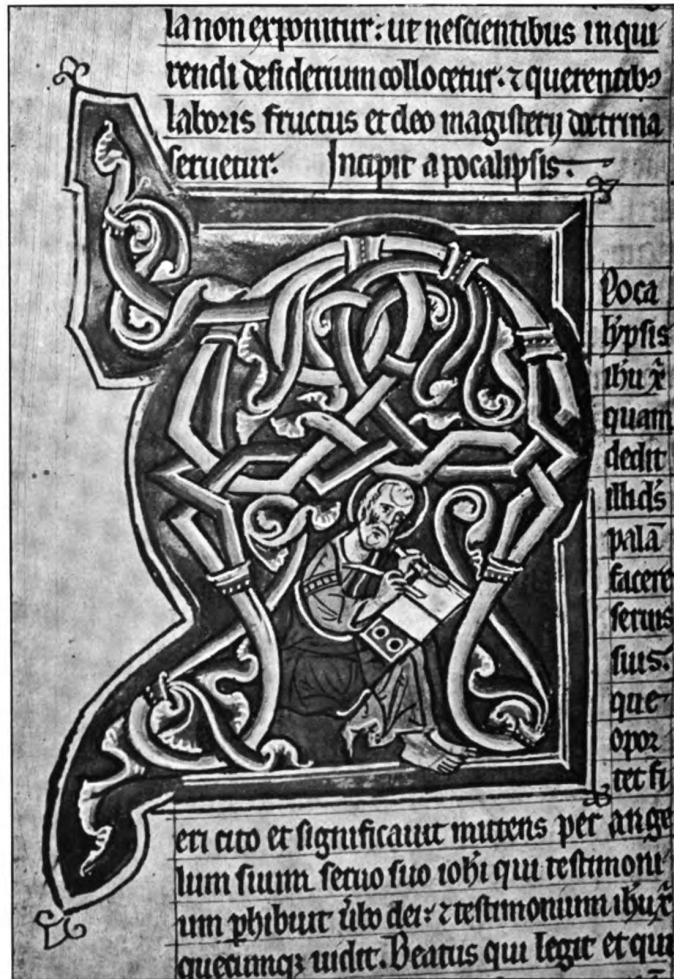 la non exponitur: ut nescientibus inqui
rendi desiderium collocetur. ⁊ querentibꝰ
laboris fructus et deo magisterij doctrina
seruetur. Incipit apocalipsis.
Poca
lypsis
ihu xp̄
quam
dedit
illi ds̄
palā
facere
seruis
suis.
que
opor
tet fi
eri cito et significauit mittens per ange
lum suum seruo suo iohi qui testimoni
um phibuit ūbo dei: ⁊ testimonium ihu xp̄
quecumqꝫ uidit. Beatus qui legit et qui